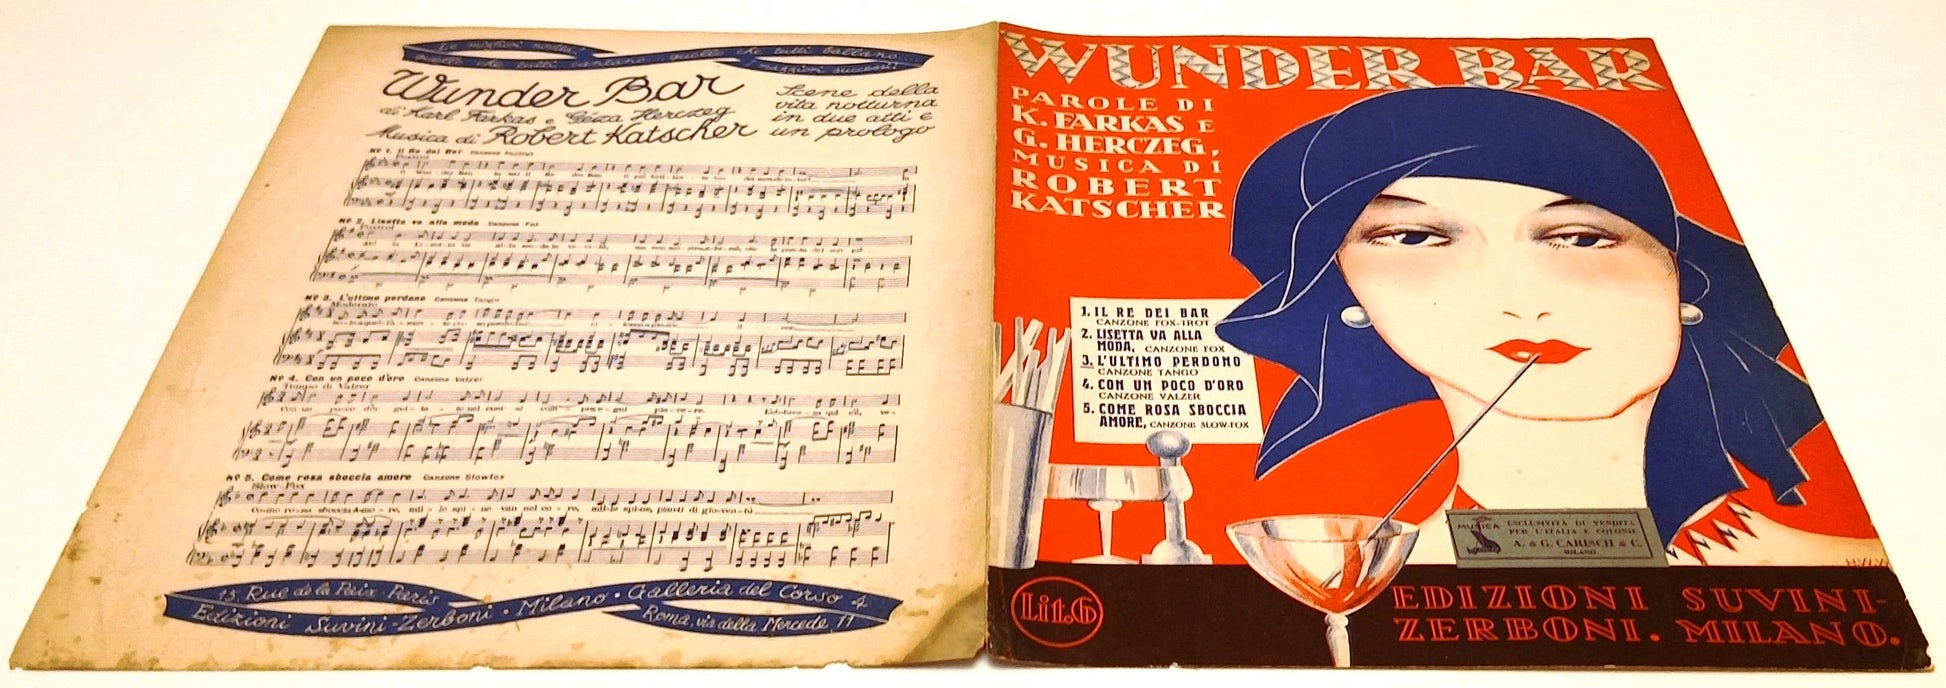 Le migliori novità
quelle che tutti cantano quello che tutti ballano...
i maggiori successi!
Wunder Bar
di Karl Farkas e Géza Herczeg
Musica di Robert Katscher
Scene della
vita notturna
in due atti e
un prologo
Nº 1. Il Re dei Bar Canzone Foxtrot
Foxtrot
Nº 2. Lisetta va alla moda Canzone Fox
Foxtrot
Nº 3. L'ultimo perdono Canzone Tango
Moderato
Nº 4. Con un poco d'oro Canzone Valzer
Tempo di Valzer
Nº 5. Come rosa sboccia amore Canzone Slowfox
Slow-Fox
Co-me ro-sa sboccia A-mo-re, mil-le spi-ne van nel co-re, mil-le spi-ne, pian-ti di gio-ven-tù
13, Rue de la Paix - Paris
Edizioni Suvini-Zerboni • Milano • Galleria del Corso 4
Roma, via della Mercede, 11
WUNDER BAR
PAROLE DI
K. FARKAS E
G. HERCZEG,
MUSICA DI
ROBERT
KATSCHER
1. IL RE DEI BAR
CANZONE FOX-TROT
2. LISETTA VA ALLA
MODA, CANZONE FOX
3. L'ULTIMO PERDONO
CANZONE TANGO
4. CON UN POCO D'ORO
CANZONE VALZER
5. COME ROSA SBOCCIA
AMORE, CANZONE SLOW-FOX
MUSICA
ESCLUSIVITÀ DI VENDITA
PER L'ITALIA E COLONIE
A. & G. CARISCH & C.
MILANO
Lit.6
EDIZIONI SUVINI-
ZERBONI. MILANO.